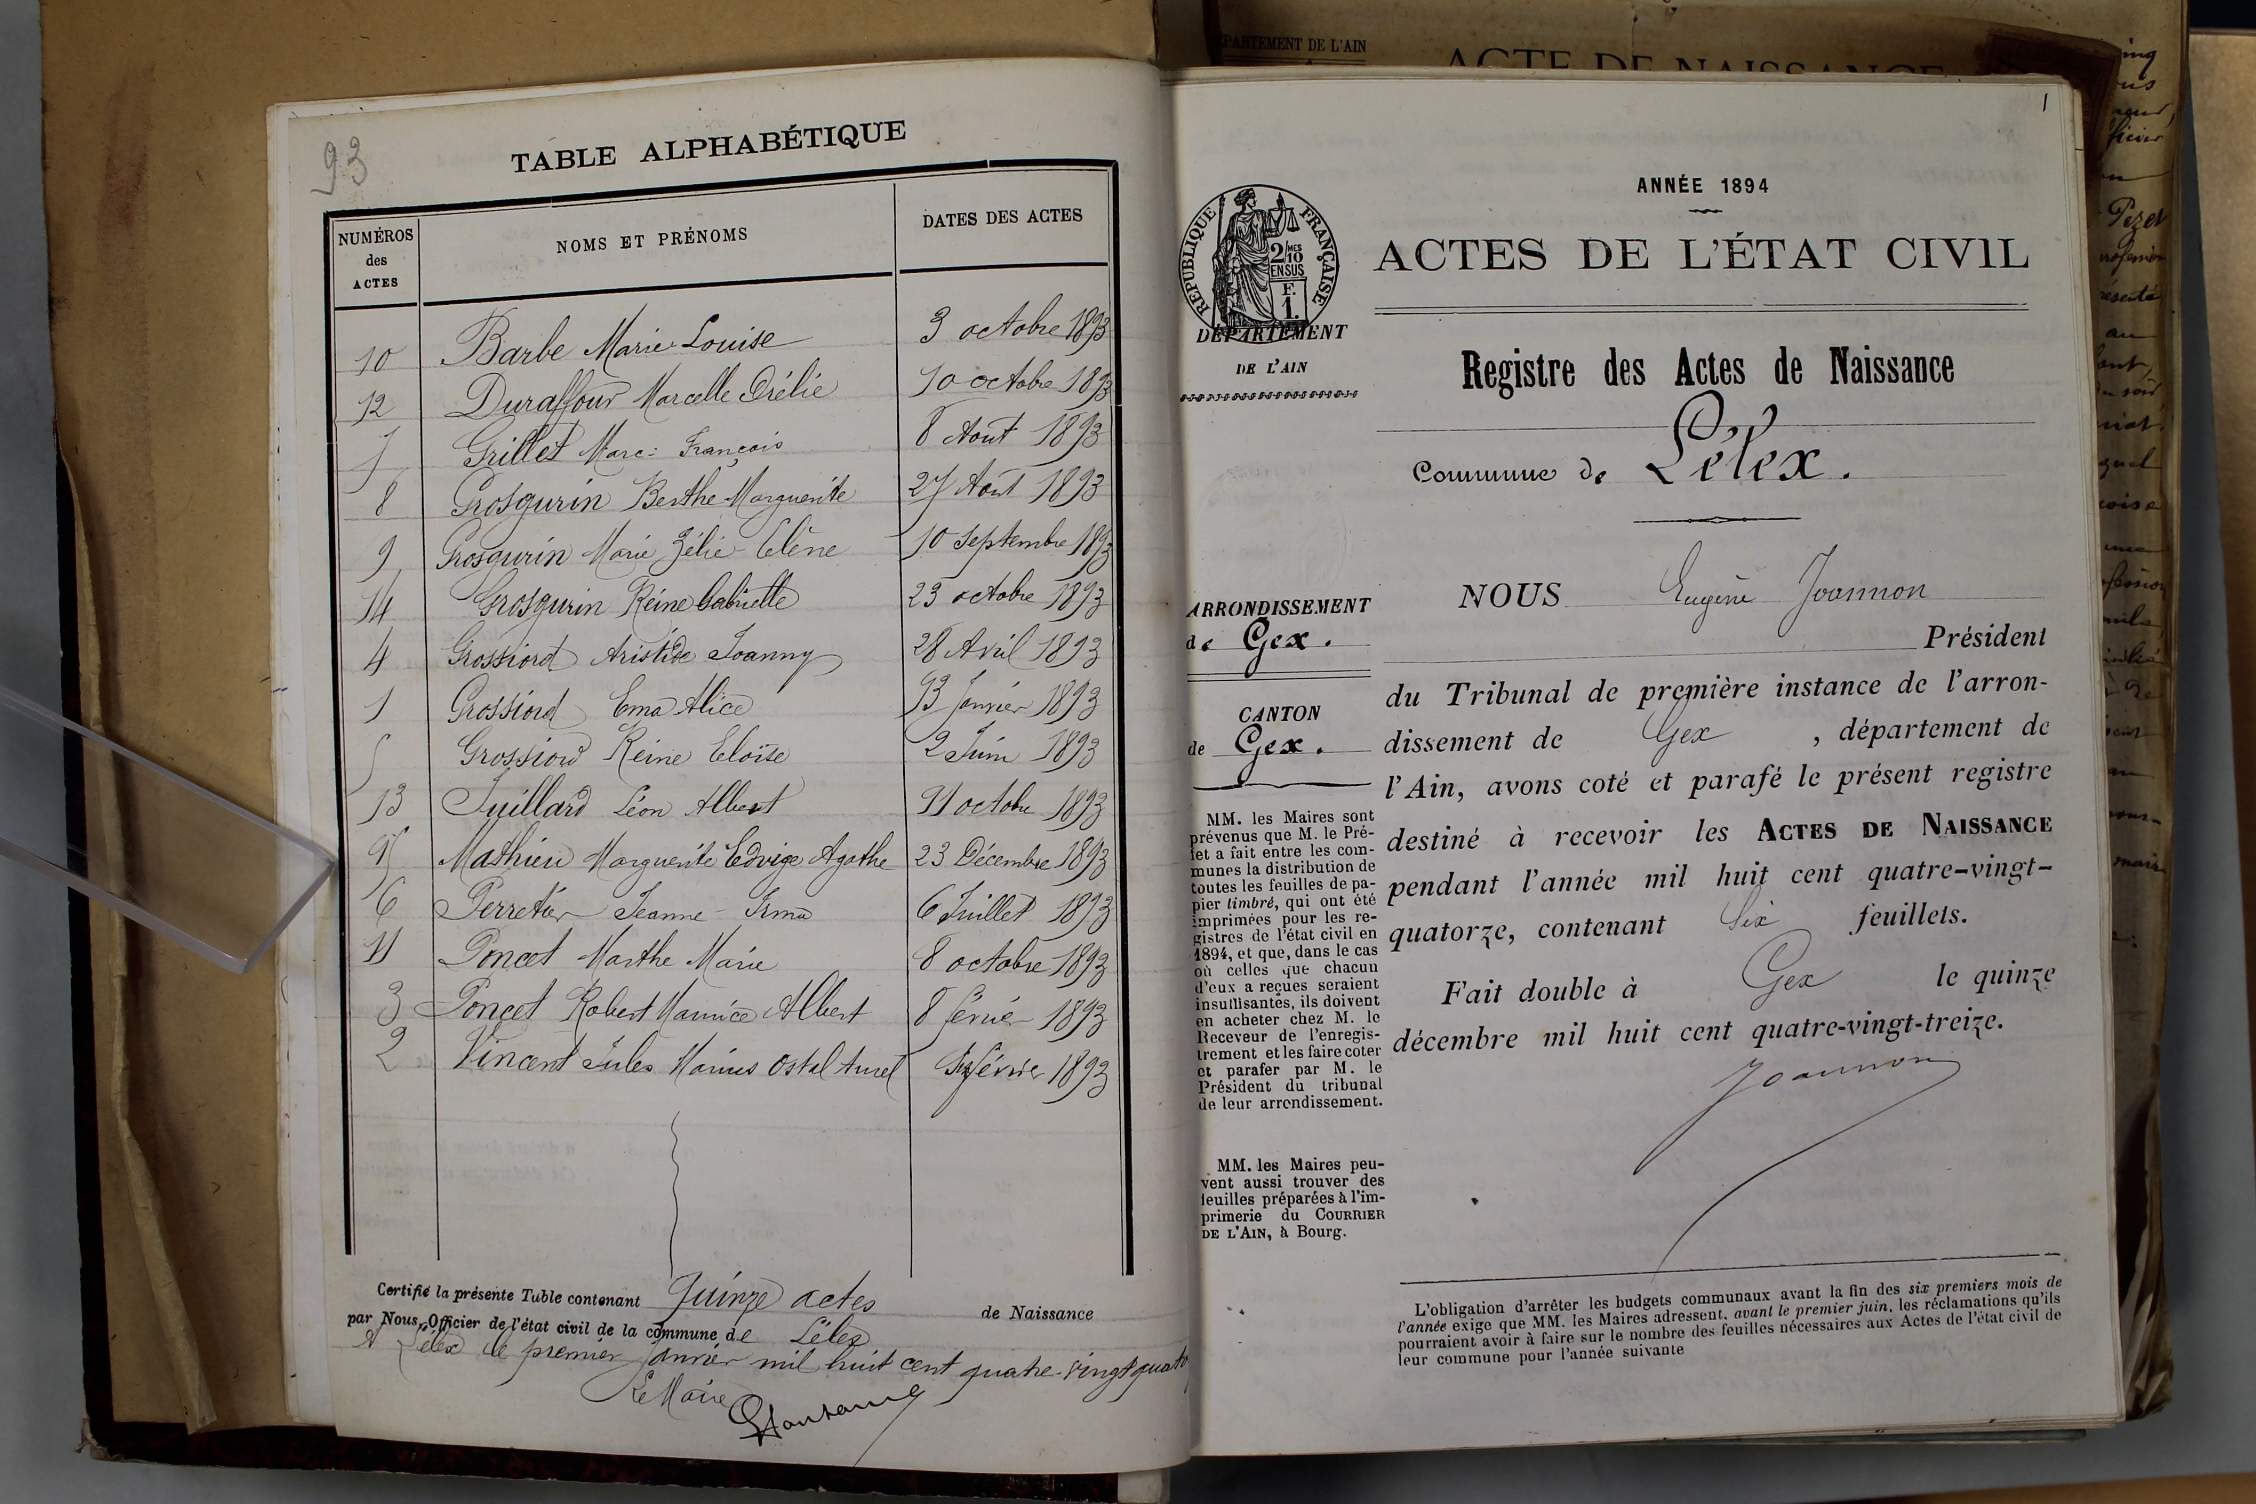 93
TABLE ALPHABÉTIQUE
NUMÉROS des ACTES
NOMS ET PRÉNOMS
DATES DES ACTES
10 Barbe Marie Louise 3 octobre 1893
12 Duraffour Marcelle Orélie 10 octobre 1893
7 Grillet Marc François 8 Aout 1893
8 Grosgurin Berthe Marguerite 27 Août 1893
9 Grosgurin Marie Zélie Celène 10 septembre 1893
14 Grosgurin Reine Gabrielle 23 octobre 1893
4 Grossiord Aristide Joanny 28 Avril 1893
1 Grossiord Ema Alice 13 Janvier 1893
5 Grossiord Reine Eloïse 2 Juin 1893
13 Juillard Léon Albert 11 octobre 1893
15 Mathieu Marguerite Edvige Agathe 23 Décembre 1893
6 Perretier Jeanne Irma 6 Juillet 1893
11 Poncet Marthe Marie 8 octobre 1893
3 Poncet Robert Maurice Albert 8 février 1893
2 Vincent Jules Marius février 1893
Certifié la présente Table contenant Quinze actes de Naissance
par Nous, Officier de l'état civil de la commune de Lélex
A Lélex le premier Janvier mil huit cent quatre-vingt quato
Le Maire
DÉPARTEMENT DE L'AIN
ACTE DE NAISSANCE
1
ANNÉE 1894
ACTES DE L'ÉTAT CIVIL
RÉPUBLIQUE FRANÇAISE
2/10 MES
EN SUS
F.
1.
DÉPARTEMENT
DE L'AIN
Registre des Actes de Naissance
Commune de Lélex.
ARRONDISSEMENT
de Gex.
CANTON
de Gex.
NOUS Eugène Joannon
Président
du Tribunal de première instance de l'arron-
dissement de Gex, département de
l'Ain, avons coté et parafé le présent registre
destiné à recevoir les ACTES DE NAISSANCE
pendant l'année mil huit cent quatre-vingt-
quatorze, contenant Six feuillets.
Fait double à Gex le quinze
décembre mil huit cent quatre-vingt-treize.
Joannon
MM. les Maires sont
prévenus que M. le Pré-
fet a fait entre les com-
munes la distribution de
toutes les feuilles de pa-
pier timbré, qui ont été
imprimées pour les re-
gistres de l'état civil en
1894, et que, dans le cas
où celles que chacun
d'eux a reçues seraient
insuffisantes, ils doivent
en acheter chez M. le
Receveur de l'enregis-
trement et les faire coter
et parafer par M. le
Président du tribunal
de leur arrondissement.
MM. les Maires peu-
vent aussi trouver des
feuilles préparées à l'im-
primerie du COURRIER
DE L'AIN, à Bourg.
L'obligation d'arrêter les budgets communaux avant la fin des six premiers mois de
l'année exige que MM. les Maires adressent, avant le premier juin, les réclamations qu'ils
pourraient avoir à faire sur le nombre des feuilles nécessaires aux Actes de l'état civil de
leur commune pour l'année suivante